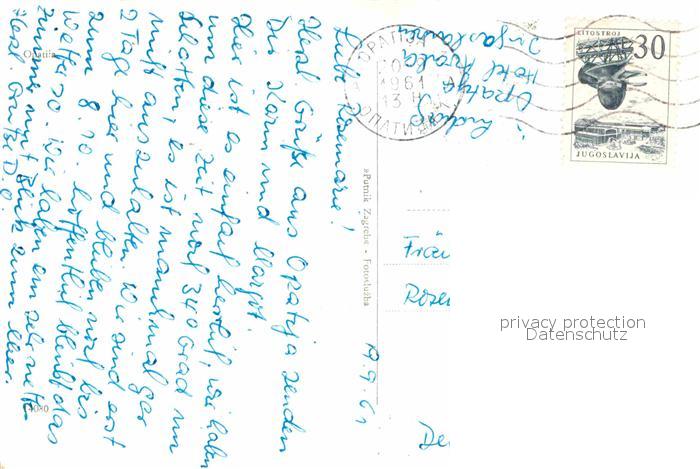 Liebe Rosemarie!
Herzl. Grüße aus Opatija senden
Dir Karin und Margot.
Hier ist es einfach herrlich, wir haben
um diese Zeit noch 34 Grad im
Schatten, es ist manchmal gar
nicht auszuhalten. Wir sind erst
2 Tage hier und bleiben noch bis
zum 8.10. hoffentlich bleibt das
Wetter so. Wir haben ein sehr nettes
Zimmer mit Blick zum Meer.
Herzl. Grüße D. O.
Opatija
Hotel
Jugoslawien
19.9.61
Opatija
4080
»Putnik Zagreb« - Fotoslužba
ОПАТИЈА
1961
13 H
LITOSTROJ
30
JUGOSLAVIJA
Fräu
Rosem
De
privacy protection
Datenschutz